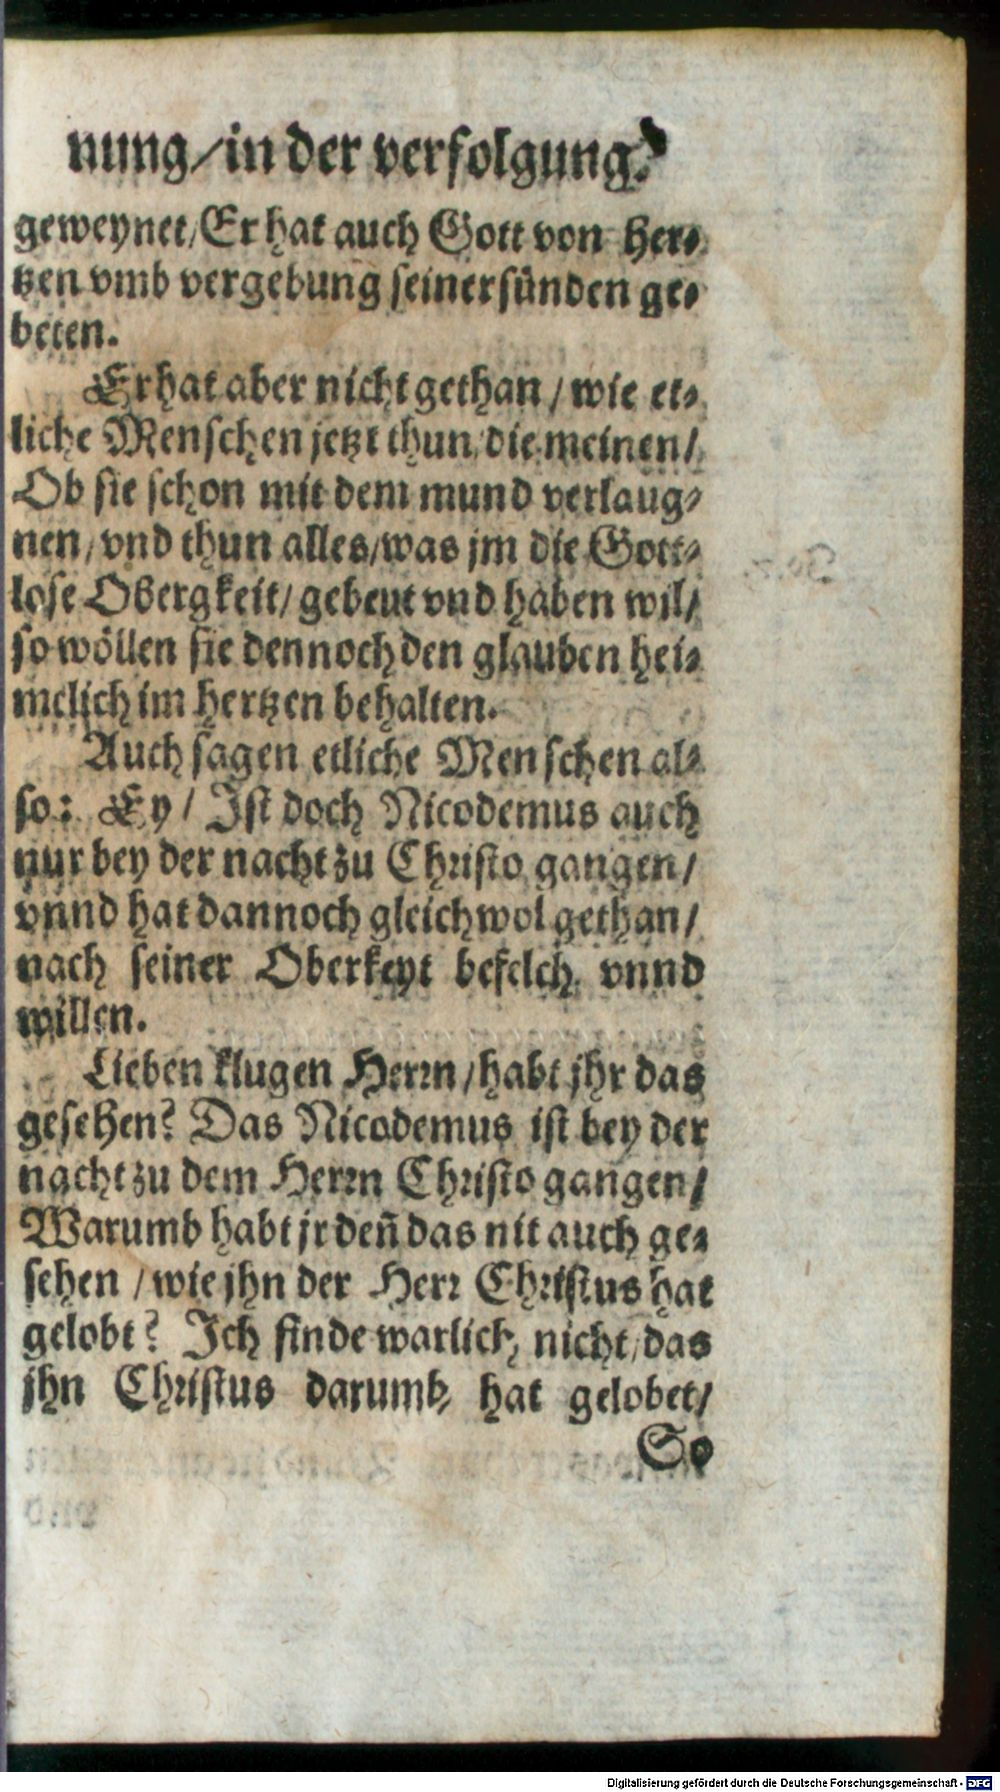 nung/in der verfolgung.
geweynet/Er hat auch Gott von her⸗
tzen vmb vergebung seiner sünden ge⸗
beten.
Er hat aber nicht gethan/wie et⸗
liche Menschen jetzt thun/die meinen/
Ob sie schon mit dem mund verlaug⸗
nen/vnd thun alles/was jm die Gott⸗
lose Obergkeit/gebeut vnd haben wil/
so wöllen sie dennoch den glauben hei⸗
melich im hertzen behalten.
Auch sagen etliche Menschen al⸗
so: Ey/Ist doch Nicodemus auch
nur bey der nacht zu Christo gangen/
vnnd hat dannoch gleichwol gethan/
nach seiner Oberkeyt befelch vnnd
willen.
Lieben klugen Herrn/habt jhr das
gesehen? Das Nicodemus ist bey der
nacht zu dem Herrn Christo gangen/
Warumb habt jr deñ das nit auch ge⸗
sehen/wie jhn der Herr Christus hat
gelobt? Ich finde warlich nicht/das
jhn Christus darumb hat gelobet/
So
Digitalisierung gefördert durch die Deutsche Forschungsgemeinschaft - DFG